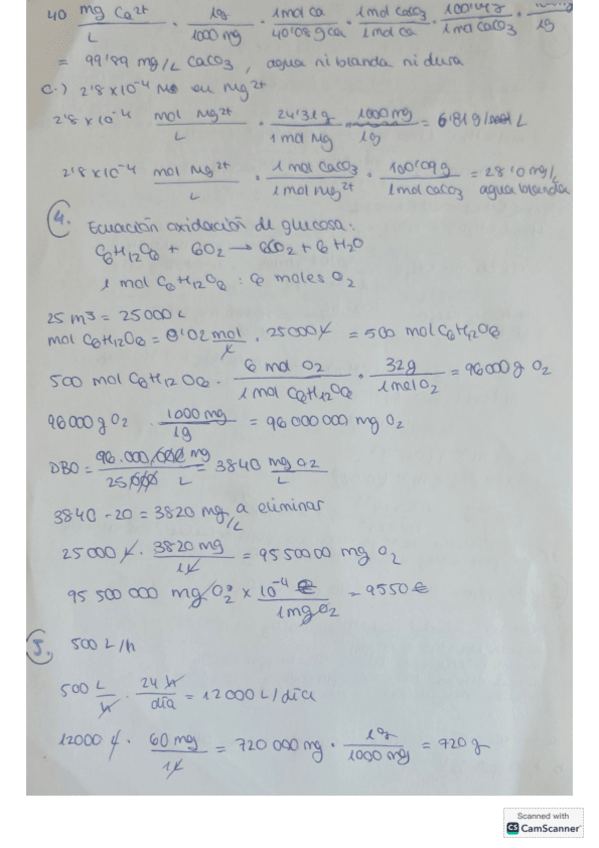 40 mg Ca²⁺/L · 1g/1000 mg · 1mol Ca/40'08 g Ca · 1mol CaCO₃/1mol Ca · 100'09 g/1mol CaCO₃ · 1000mg/1g
= 99'89 mg/L CaCO₃, agua ni blanda ni dura
c.) 2'8 x 10⁻⁴ M en Mg²⁺
2'8 x 10⁻⁴ mol Mg²⁺/L · 24'31g/1mol Mg · 1000mg/1g = 6'81g/ L
2'8 x 10⁻⁴ mol Mg²⁺/L · 1 mol CaCO₃/1 mol Mg²⁺ · 100'09 g/1mol CaCO₃ = 28'0 mg/L agua blanda
4. Ecuación oxidación de glucosa:
C₆H₁₂O₆ + 6O₂ → 6CO₂ + 6 H₂O
1 mol C₆H₁₂O₆ : 6 moles O₂
25 m³ = 25000 L
mol C₆H₁₂O₆ = 0'02 mol/L · 25000 L = 500 mol C₆H₁₂O₆
500 mol C₆H₁₂O₆ · 6 mol O₂/1 mol C₆H₁₂O₆ · 32g/1mol O₂ = 96000 g O₂
96000 g O₂ · 1000 mg/1g = 96000000 mg O₂
DBO = 96.000.000 mg/25.000 L = 3840 mg O₂/L
3840 - 20 = 3820 mg/L a eliminar
25000 L · 3820 mg/1L = 9550000 mg O₂
95 500 000 mg O₂ x 10⁻⁴ €/1mg O₂ = 9550 €
5. 500 L/h
500 L/h · 24 h/día = 12000 L/día
12000 L · 60 mg/1L = 720 000 mg · 1g/1000 mg = 720 g
Scanned with
CS CamScanner